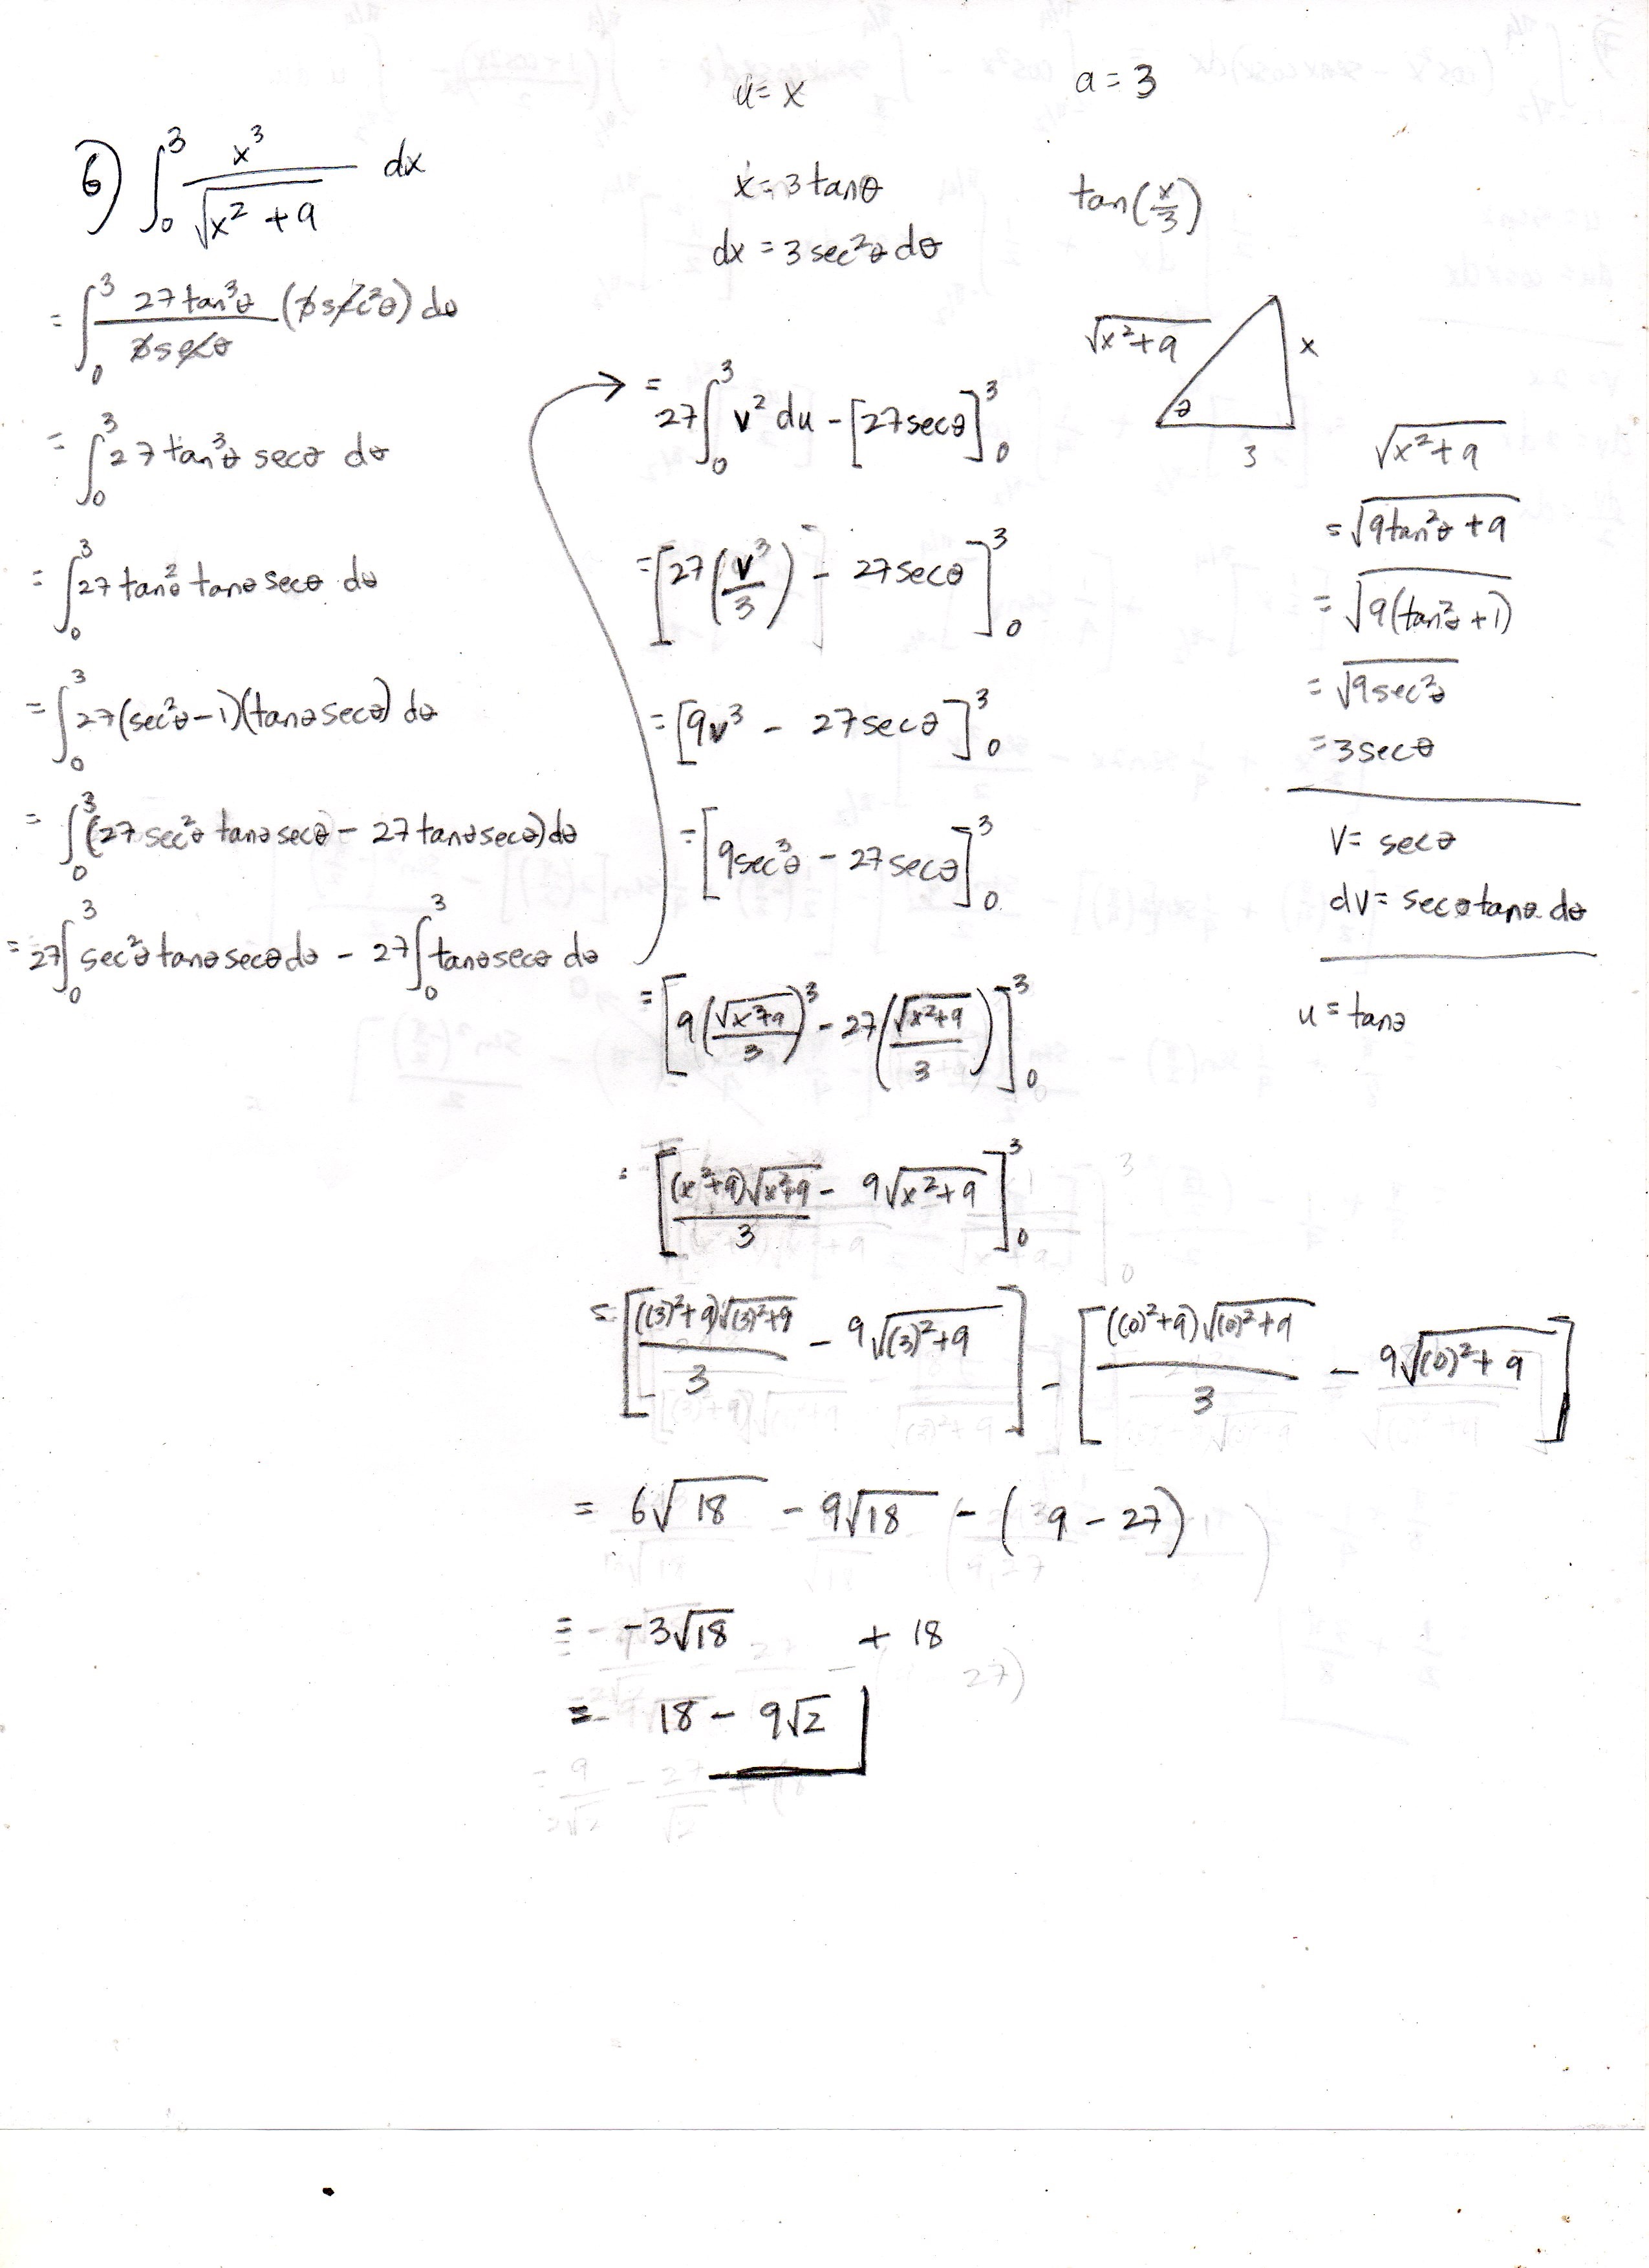 u = x
a = 3
6) ∫₀³ x³/√(x² + 9) dx
x = 3 tanθ
tan(x/3)
dx = 3 sec²θ dθ
= ∫₀³ 27 tan³θ/(3 secθ) (3 sec²θ) dθ
= ∫₀³ 27 tan³θ secθ dθ
= ∫₀³ 27 tan²θ tanθ secθ dθ
= ∫₀³ 27(sec²θ - 1)(tanθ secθ) dθ
= ∫₀³ (27 sec²θ tanθ secθ - 27 tanθ secθ) dθ
= 27∫₀³ sec²θ tanθ secθ dθ - 27∫₀³ tanθ secθ dθ
= 27∫₀³ v² du - [27 secθ]₀³
= [27(v³/3) - 27 secθ]₀³
= [9v³ - 27 secθ]₀³
= [9 sec³θ - 27 secθ]₀³
= [9(√(x²+9)/3)³ - 27(√(x²+9)/3)]₀³
= [(x²+9)√(x²+9)/3 - 9√(x²+9)]₀³
= [((3)²+9)√((3)²+9)/3 - 9√((3)²+9)] - [((0)²+9)√((0)²+9)/3 - 9√((0)²+9)]
= 6√18 - 9√18 - (9 - 27)
= -3√18 + 18
= 18 - 9√2
√(x²+9)
x
θ
3
√(x²+9)
= √(9tan²θ + 9)
= √(9(tan²θ + 1))
= √(9 sec²θ)
= 3 secθ
v = secθ
dv = secθ tanθ dθ
u = tanθ